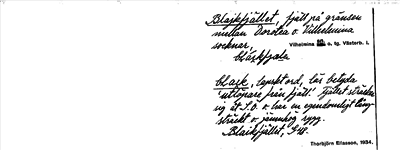 Blaikfjället, fjäll på gränsen
mellan Dorotea o. Vilhelmina
socknar, Vilhelmina sn o. tg. Västerb. l.
blåckfjala
black, lapskt ord, lär betyda
"utlöpare från fjäll". Fjället sträcker
sig åt S.O. o har en egendomligt lång-
sträckt o. jämnhög rygg.
Blaikfjället, GW.
Thorbjörn Eliasson, 1934.